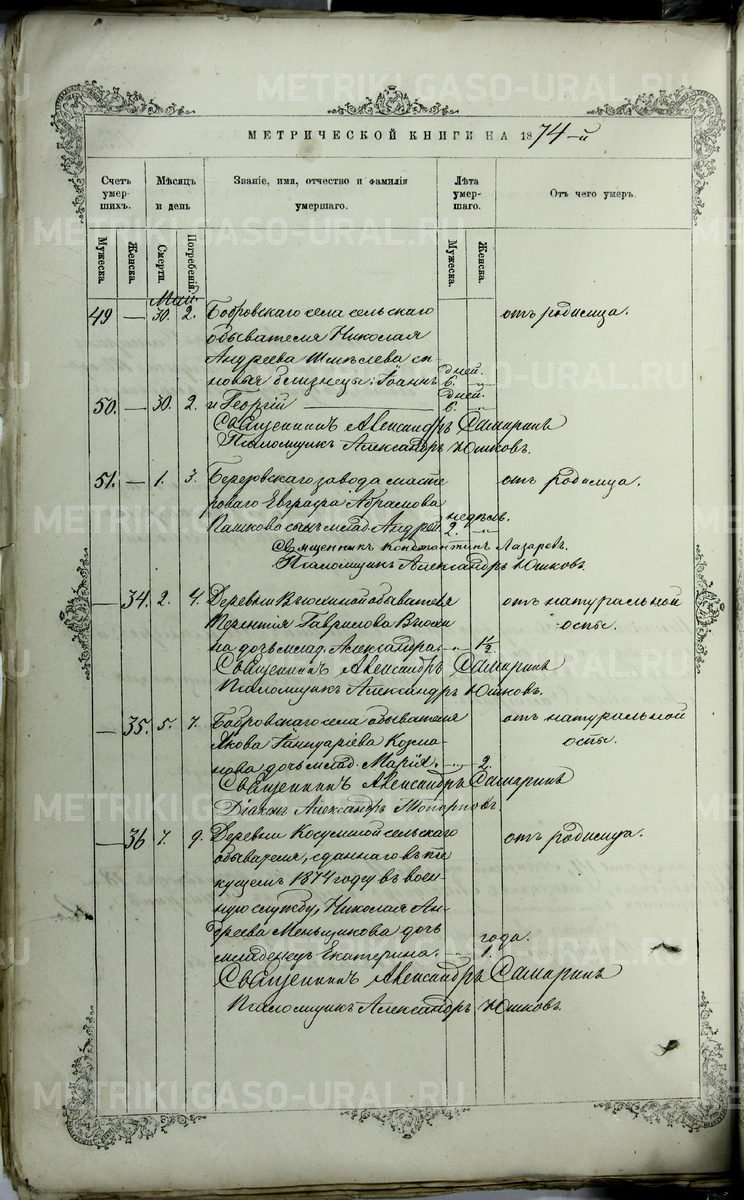 МЕТРИЧЕСКОЙ КНИГИ НА 1874-й
Счетъ умер-шихъ. Мѣсяцъ и день Званіе, имя, отчество и фамилія умершаго. Лѣта умер-шаго. Отъ чего умеръ.
Мужеска. Женска. Смерти. Погребенія. Мужеска. Женска.
Май.
49 — 30. 2. Бобровскаго села сельскаго отъ родимца.
обывателя Николая
Андреева Шмелева сы-
новья близнецы: Іоаннъ дней. 6. „
50. — 30. 2. и Георгій — дней. 6. „
Священникъ Александръ Самаринъ
Псаломщикъ Александръ Юшковъ.
51. — 1. 3. Березовскаго завода масте отъ родимца.
роваго Евграфа Абрамова
Пашкова сынъ млад. Андрей. недѣль. 2. „
Священникъ Константинъ Лазаревъ.
Псаломщикъ Александръ Юшковъ.
— 34. 2. 4. Деревни Вьюхиной обывателя отъ натуральной
Терентія Гаврилова Вьюхи оспы.
на дочь млад. Александра. „ 1½
Священникъ Александръ Самаринъ
Псаломщикъ Александръ Юшковъ.
— 35. 5. 7. Бобровскаго села обывателя отъ натуральной
Якова Іаннуаріева Козма- оспы.
нова дочь млад. Марія. „ 2.
Священникъ Александръ Самаринъ
Діаконъ Александръ Топорковъ.
— 36 7. 9. Деревни Косулиной сельскаго отъ родимца.
обывателя, сданнаго въ те
кущемъ 1874 году въ воен
ную службу, Николая Ан-
дреева Меньщикова дочь
младенецъ Екатерина. „ года. 1.
Священникъ Александръ Самаринъ
Псаломщикъ Александръ Юшковъ.
METRIKI.GASO-URAL.RU